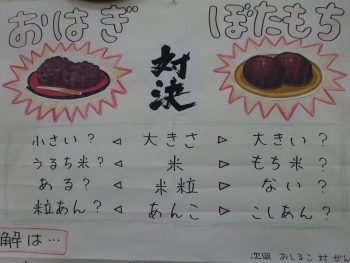 おはぎ 対決 ぼたもち
小さい？ ◁ 大きさ ▷ 大きい？
うるち米？ ◁ 米 ▷ もち米？
ある？ ◁ 米粒 ▷ ない？
粒あん？ ◁ あんこ ▷ こしあん？
解は…
次回 おしるこ 対 ぜん